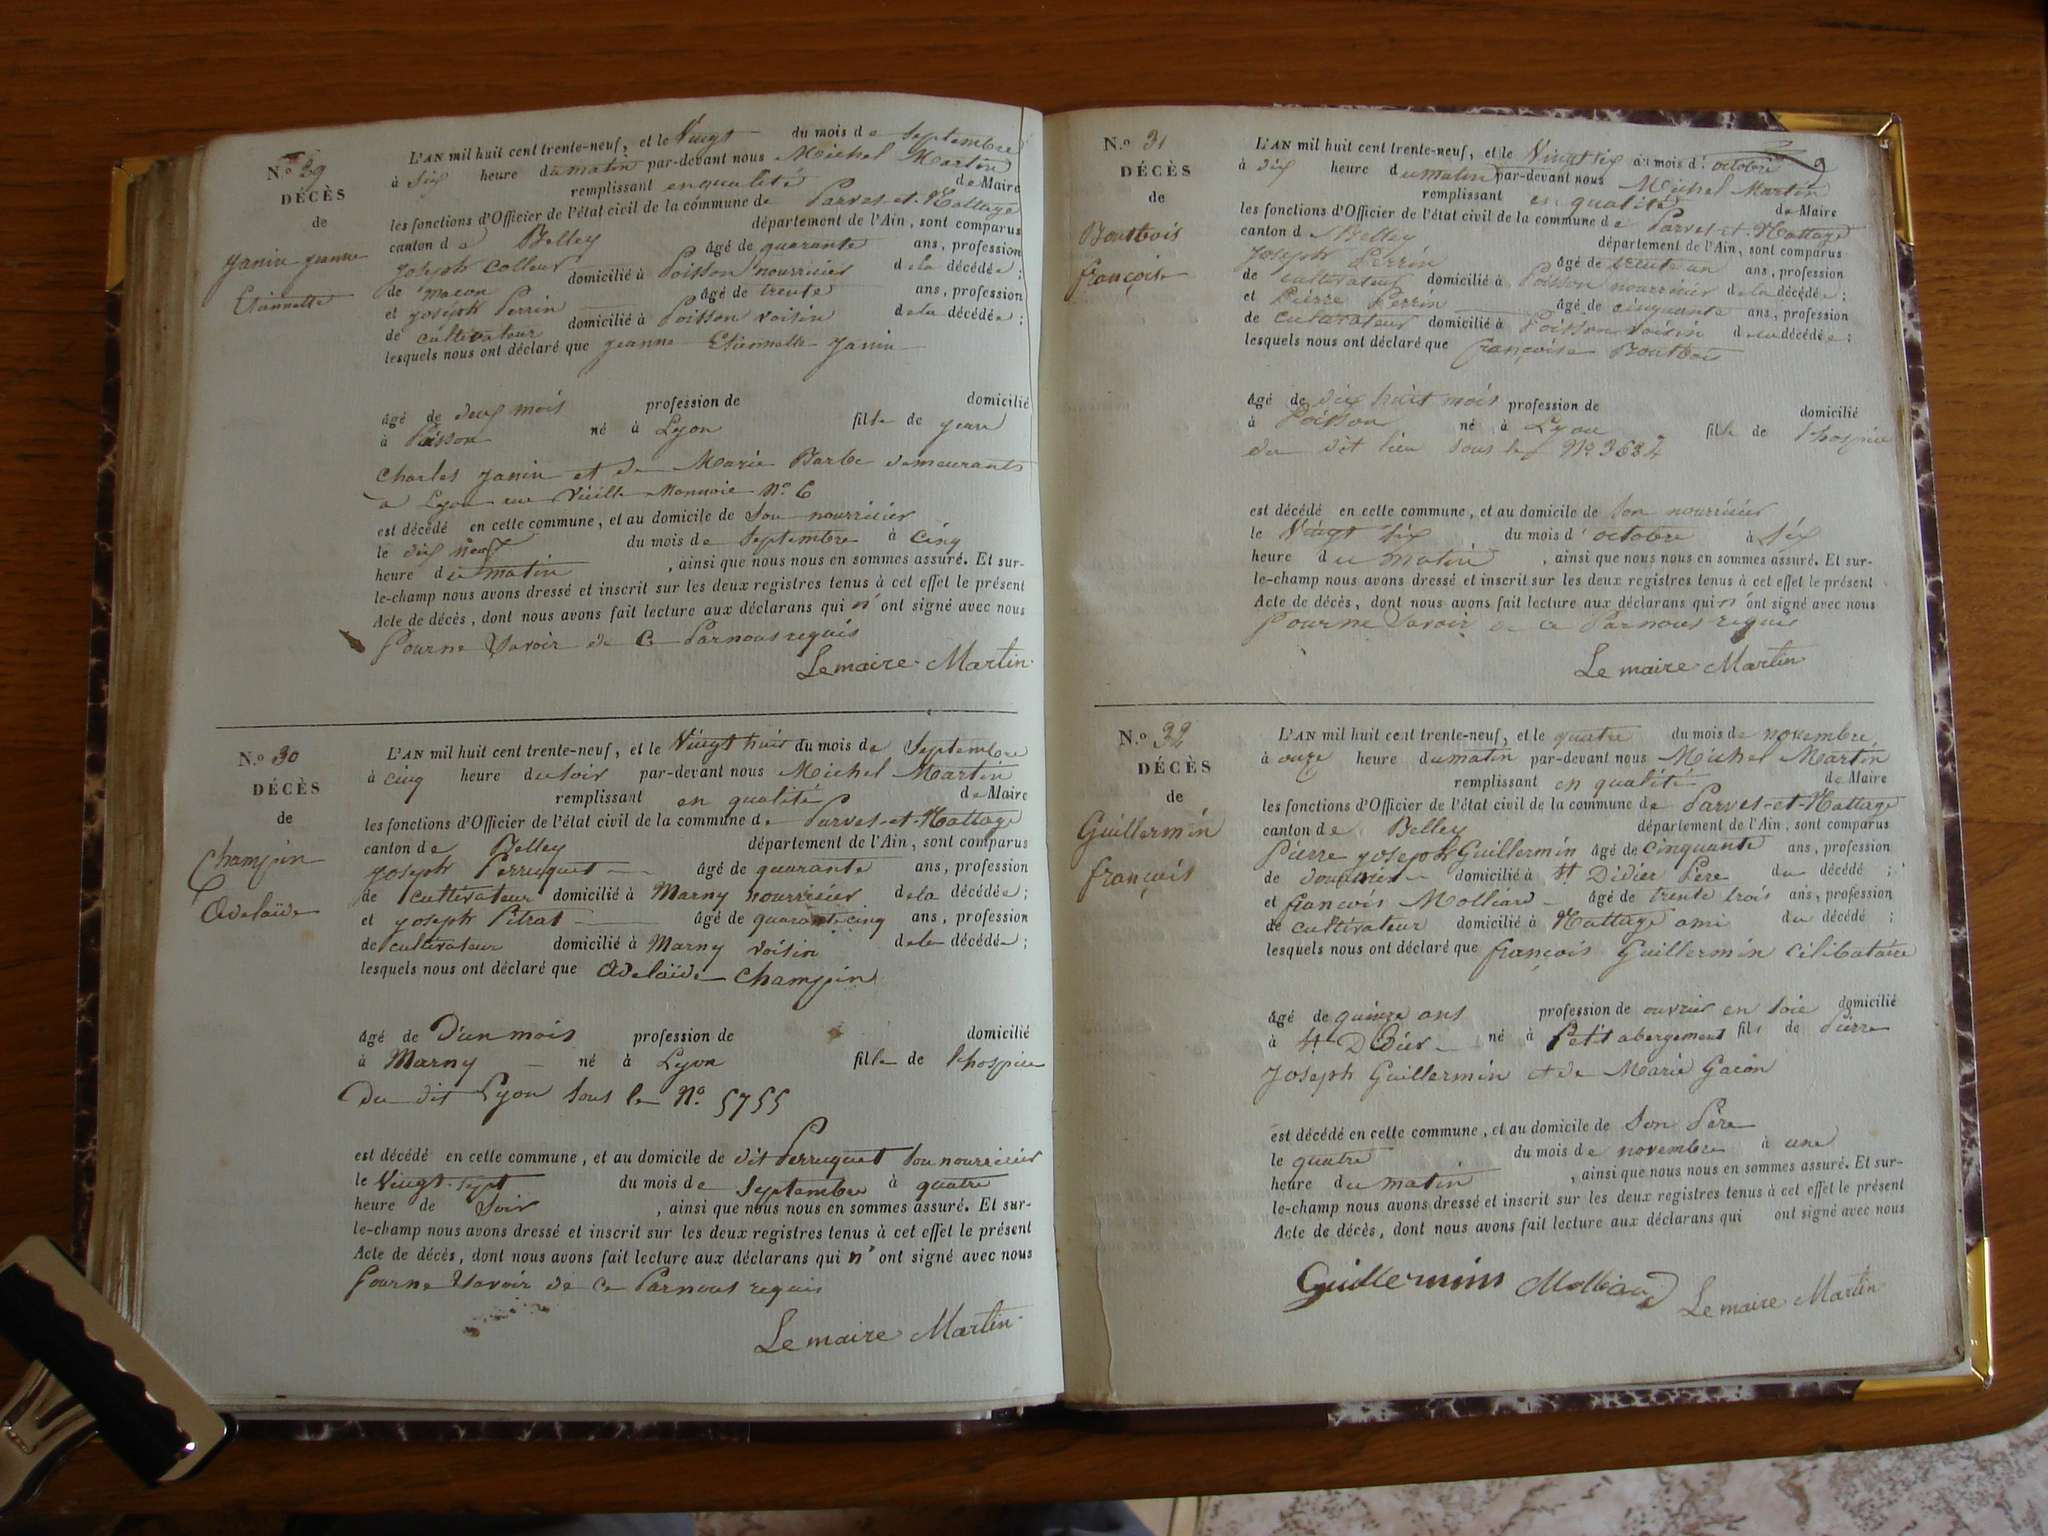 N.o 29
DÉCÈS
de
Janin Jeanne
Etiennette
L'AN mil huit cent trente-neuf, et le Vingt du mois de Septembre
à dix heure du matin par-devant nous Michel Martin
remplissant en qualité de Maire
les fonctions d'Officier de l'état civil de la commune de Parves-et-Nattage
canton de Belley département de l'Ain, sont comparus
Joseph âgé de quarante ans, profession
de macon domicilié à Poisson nourricier de la décédée;
et Joseph Perrin âgé de trente ans, profession
de cultivateur domicilié à Poisson voisin de la décédée;
lesquels nous ont déclaré que Jeanne Etiennette Janin
âgé de deux mois profession de domicilié
à Poisson né à Lyon fille de Jean
Charles Janin et de Marie Barbe demeurants
a Lyon rue Vieille Monnoie No. 6
est décédé en cette commune, et au domicile de Son nourricier
le dix neuf du mois de Septembre à cinq
heure du matin, ainsi que nous nous en sommes assuré. Et sur-
le-champ nous avons dressé et inscrit sur les deux registres tenus à cet effet le présent
Acte de décès, dont nous avons fait lecture aux déclarans qui n'ont signé avec nous
Pour ne Savoir de ce Par nous requis
Le maire Martin
N.o 30
DÉCÈS
de
Champin
Adelaïde
L'AN mil huit cent trente-neuf, et le Vingt huit du mois de Septembre
à cinq heure du soir par-devant nous Michel Martin
remplissant en qualité de Maire
les fonctions d'Officier de l'état civil de la commune de Parves-et-Nattage
canton de Belley département de l'Ain, sont comparus
Joseph Perruquet âgé de quarante ans, profession
de cultivateur domicilié à Marny nourricier de la décédée;
et Joseph Pitrat âgé de quarante cinq ans, profession
de cultivateur domicilié à Marny voisin de la décédée;
lesquels nous ont déclaré que Adelaïde Champin
âgé de D'un mois profession de domicilié
à Marny né à Lyon fille de l'hospice
Du dit Lyon sous le No. 5755
est décédé en cette commune, et au domicile de dit Perruquet Son nourricier
le Vingt-Sept du mois de Septembre à quatre
heure de Soir, ainsi que nous nous en sommes assuré. Et sur-
le-champ nous avons dressé et inscrit sur les deux registres tenus à cet effet le présent
Acte de décès, dont nous avons fait lecture aux déclarans qui n'ont signé avec nous
Pour ne Savoir de ce Par nous requis
Le maire Martin
N.o 31
DÉCÈS
de
Boutbois
françoise
L'AN mil huit cent trente-neuf, et le Vingt six du mois d'octobre
à dix heure du matin par-devant nous Michel Martin
remplissant en qualité de Maire
les fonctions d'Officier de l'état civil de la commune de Parves-et-Nattage
canton de Belley département de l'Ain, sont comparus
Joseph Perrin âgé de trente un ans, profession
de cultivateur domicilié à Poisson nourricier de la décédée;
et Pierre Perrin âgé de cinquante ans, profession
de cultivateur domicilié à Poisson voisin de la décédée;
lesquels nous ont déclaré que françoise Boutbois
âgé de dix huit mois profession de domicilié
à Poisson né à Lyon fille de l'hospice
du dit lieu sous le No 3684
est décédé en cette commune, et au domicile de Son nourricier
le Vingt Six du mois d'octobre à Six
heure du matin, ainsi que nous nous en sommes assuré. Et sur-
le-champ nous avons dressé et inscrit sur les deux registres tenus à cet effet le présent
Acte de décès, dont nous avons fait lecture aux déclarans qui n'ont signé avec nous
Pour ne Savoir de ce Par nous requis
Le maire Martin
N.o 32
DÉCÈS
de
Guillermin
françois
L'AN mil huit cent trente-neuf, et le quatre du mois de novembre
à onze heure du matin par-devant nous Michel Martin
remplissant en qualité de Maire
les fonctions d'Officier de l'état civil de la commune de Parves-et-Nattage
canton de Belley département de l'Ain, sont comparus
Pierre Joseph Guillermin âgé de cinquante ans, profession
de douanier domicilié à St. Didier Père du décédé;
et françois Molliard âgé de trente trois ans, profession
de cultivateur domicilié à Nattage ami du décédé;
lesquels nous ont déclaré que françois Guillermin Célibataire
âgé de quinze ans profession de ouvrier en soie domicilié
à St. Didier né à Petit abergement fils de Pierre
Joseph Guillermin et de Marie Gacon
est décédé en cette commune, et au domicile de Son Père
le quatre du mois de novembre à une
heure du matin, ainsi que nous nous en sommes assuré. Et sur-
le-champ nous avons dressé et inscrit sur les deux registres tenus à cet effet le présent
Acte de décès, dont nous avons fait lecture aux déclarans qui ont signé avec nous
Guillermin Molliard Le maire Martin